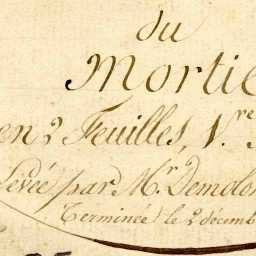 du
Mortie
en 2 Feuilles, 1.re
Levée par Mr. Demolo
Terminée le 2 décemb